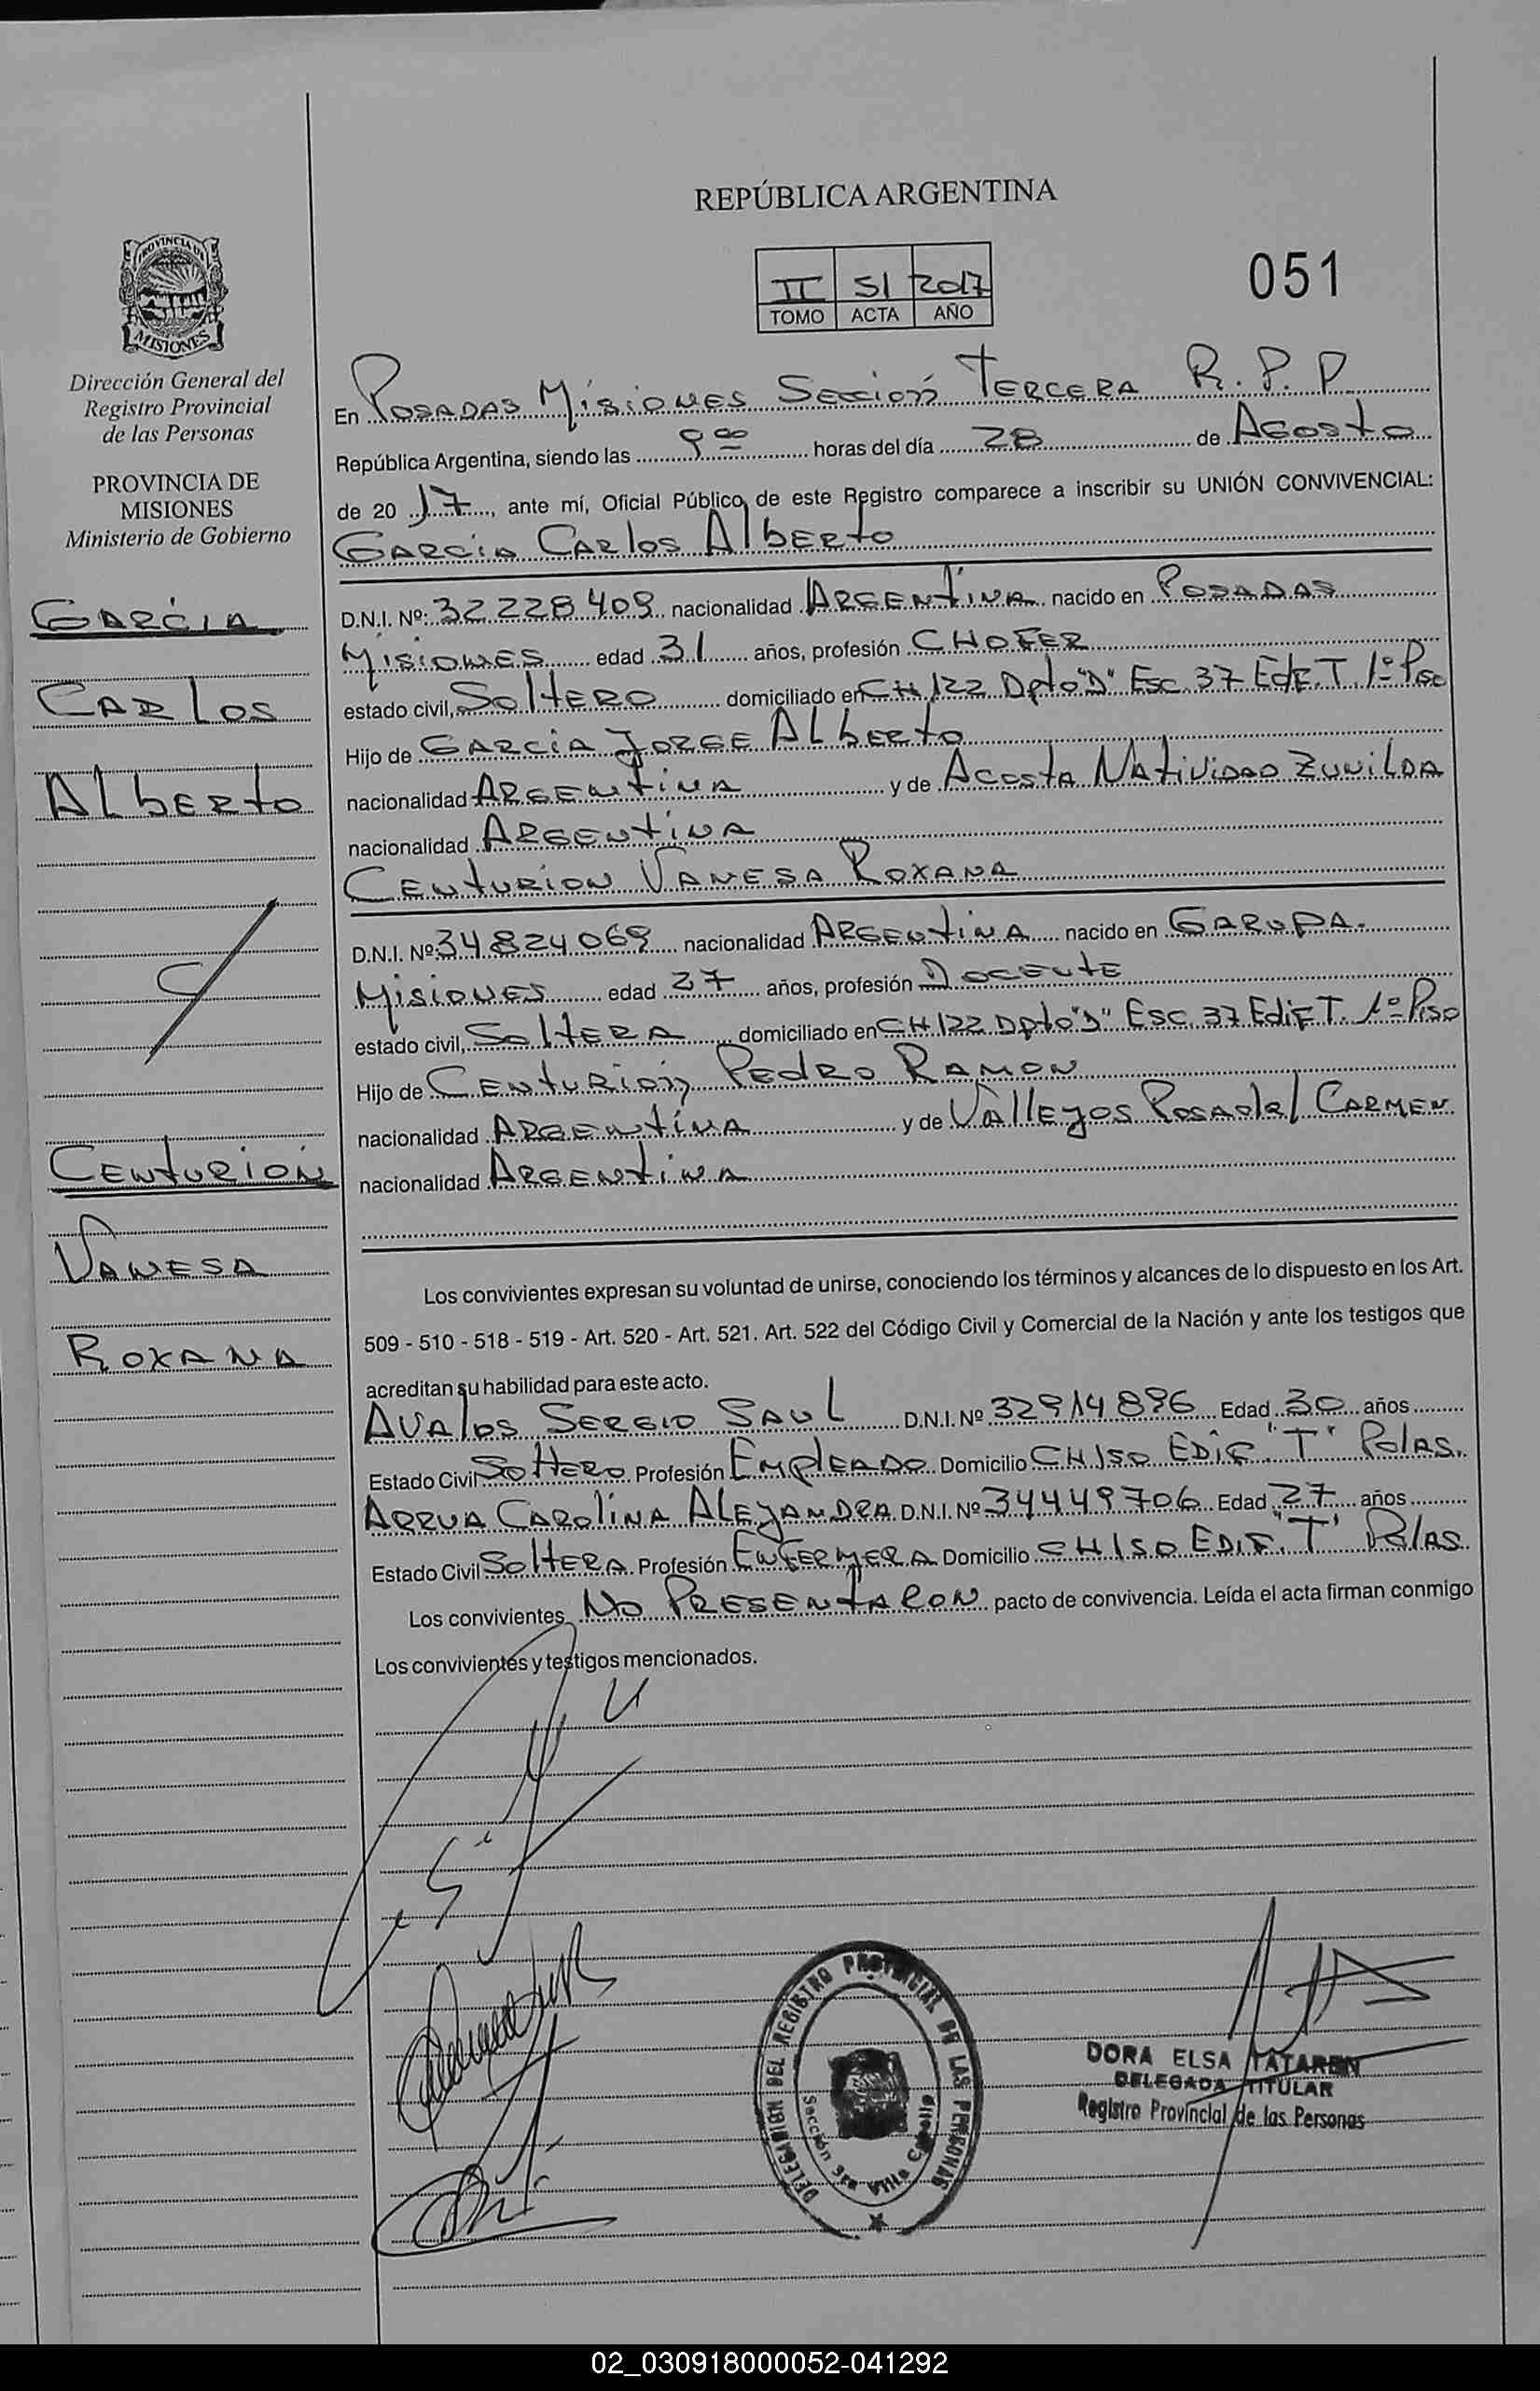 REPÚBLICA ARGENTINA
II 51 2017
TOMO ACTA AÑO
051
PROVINCIA DE MISIONES
Dirección General del
Registro Provincial
de las Personas
PROVINCIA DE
MISIONES
Ministerio de Gobierno
GARCIA
CARLOS
ALBERTO
C/
CENTURION
VANESA
ROXANA
En POSADAS MISIONES SECCIÓN TERCERA R.P.P
República Argentina, siendo las 9 00 horas del día 28 de AGOSTO
de 20 17, ante mí, Oficial Público, de este Registro comparece a inscribir su UNIÓN CONVIVENCIAL:
GARCIA CARLOS ALBERTO
D.N.I. Nº: 32 228 409 nacionalidad ARGENTINA nacido en POSADAS
MISIONES edad 31 años, profesión CHOFER
estado civil, SOLTERO domiciliado en CH 122 Dpto "D" Esc. 37 Edif. T. 1º Piso
Hijo de GARCIA JORGE ALBERTO
nacionalidad ARGENTINA y de ACOSTA NATIVIDAD ZUNILDA
nacionalidad ARGENTINA
CENTURION VANESA ROXANA
D.N.I. Nº 34 824 069 nacionalidad ARGENTINA nacido en GARUPA.
MISIONES edad 27 años, profesión DOCENTE
estado civil, SOLTERA domiciliado en CH 122 Dpto "D" Esc. 37 Edif T. 1º Piso
Hijo de CENTURIÓN PEDRO RAMON
nacionalidad ARGENTINA y de VALLEJOS ROSA del CARMEN
nacionalidad ARGENTINA
Los convivientes expresan su voluntad de unirse, conociendo los términos y alcances de lo dispuesto en los Art.
509 - 510 - 518 - 519 - Art. 520 - Art. 521. Art. 522 del Código Civil y Comercial de la Nación y ante los testigos que
acreditan su habilidad para este acto.
AVALOS SERGIO SAUL D.N.I. Nº 32914896 Edad 30 años
Estado Civil SOLTERO Profesión EMPLEADO Domicilio CH 150 EDIF. "T" Pdas.
ARRUA CAROLINA ALEJANDRA D.N.I. Nº 34449706 Edad 27 años
Estado Civil SOLTERA Profesión ENFERMERA Domicilio CH 150 EDIF. "T" Pdas.
Los convivientes NO PRESENTARON pacto de convivencia. Leída el acta firman conmigo
Los convivientes y testigos mencionados.
DELEGACION DEL REGISTRO PROVINCIAL DE LAS PERSONAS
Sección 3ra Villa Cabello
DORA ELSA TATAREN
DELEGADA TITULAR
Registro Provincial de las Personas
02_030918000052-041292